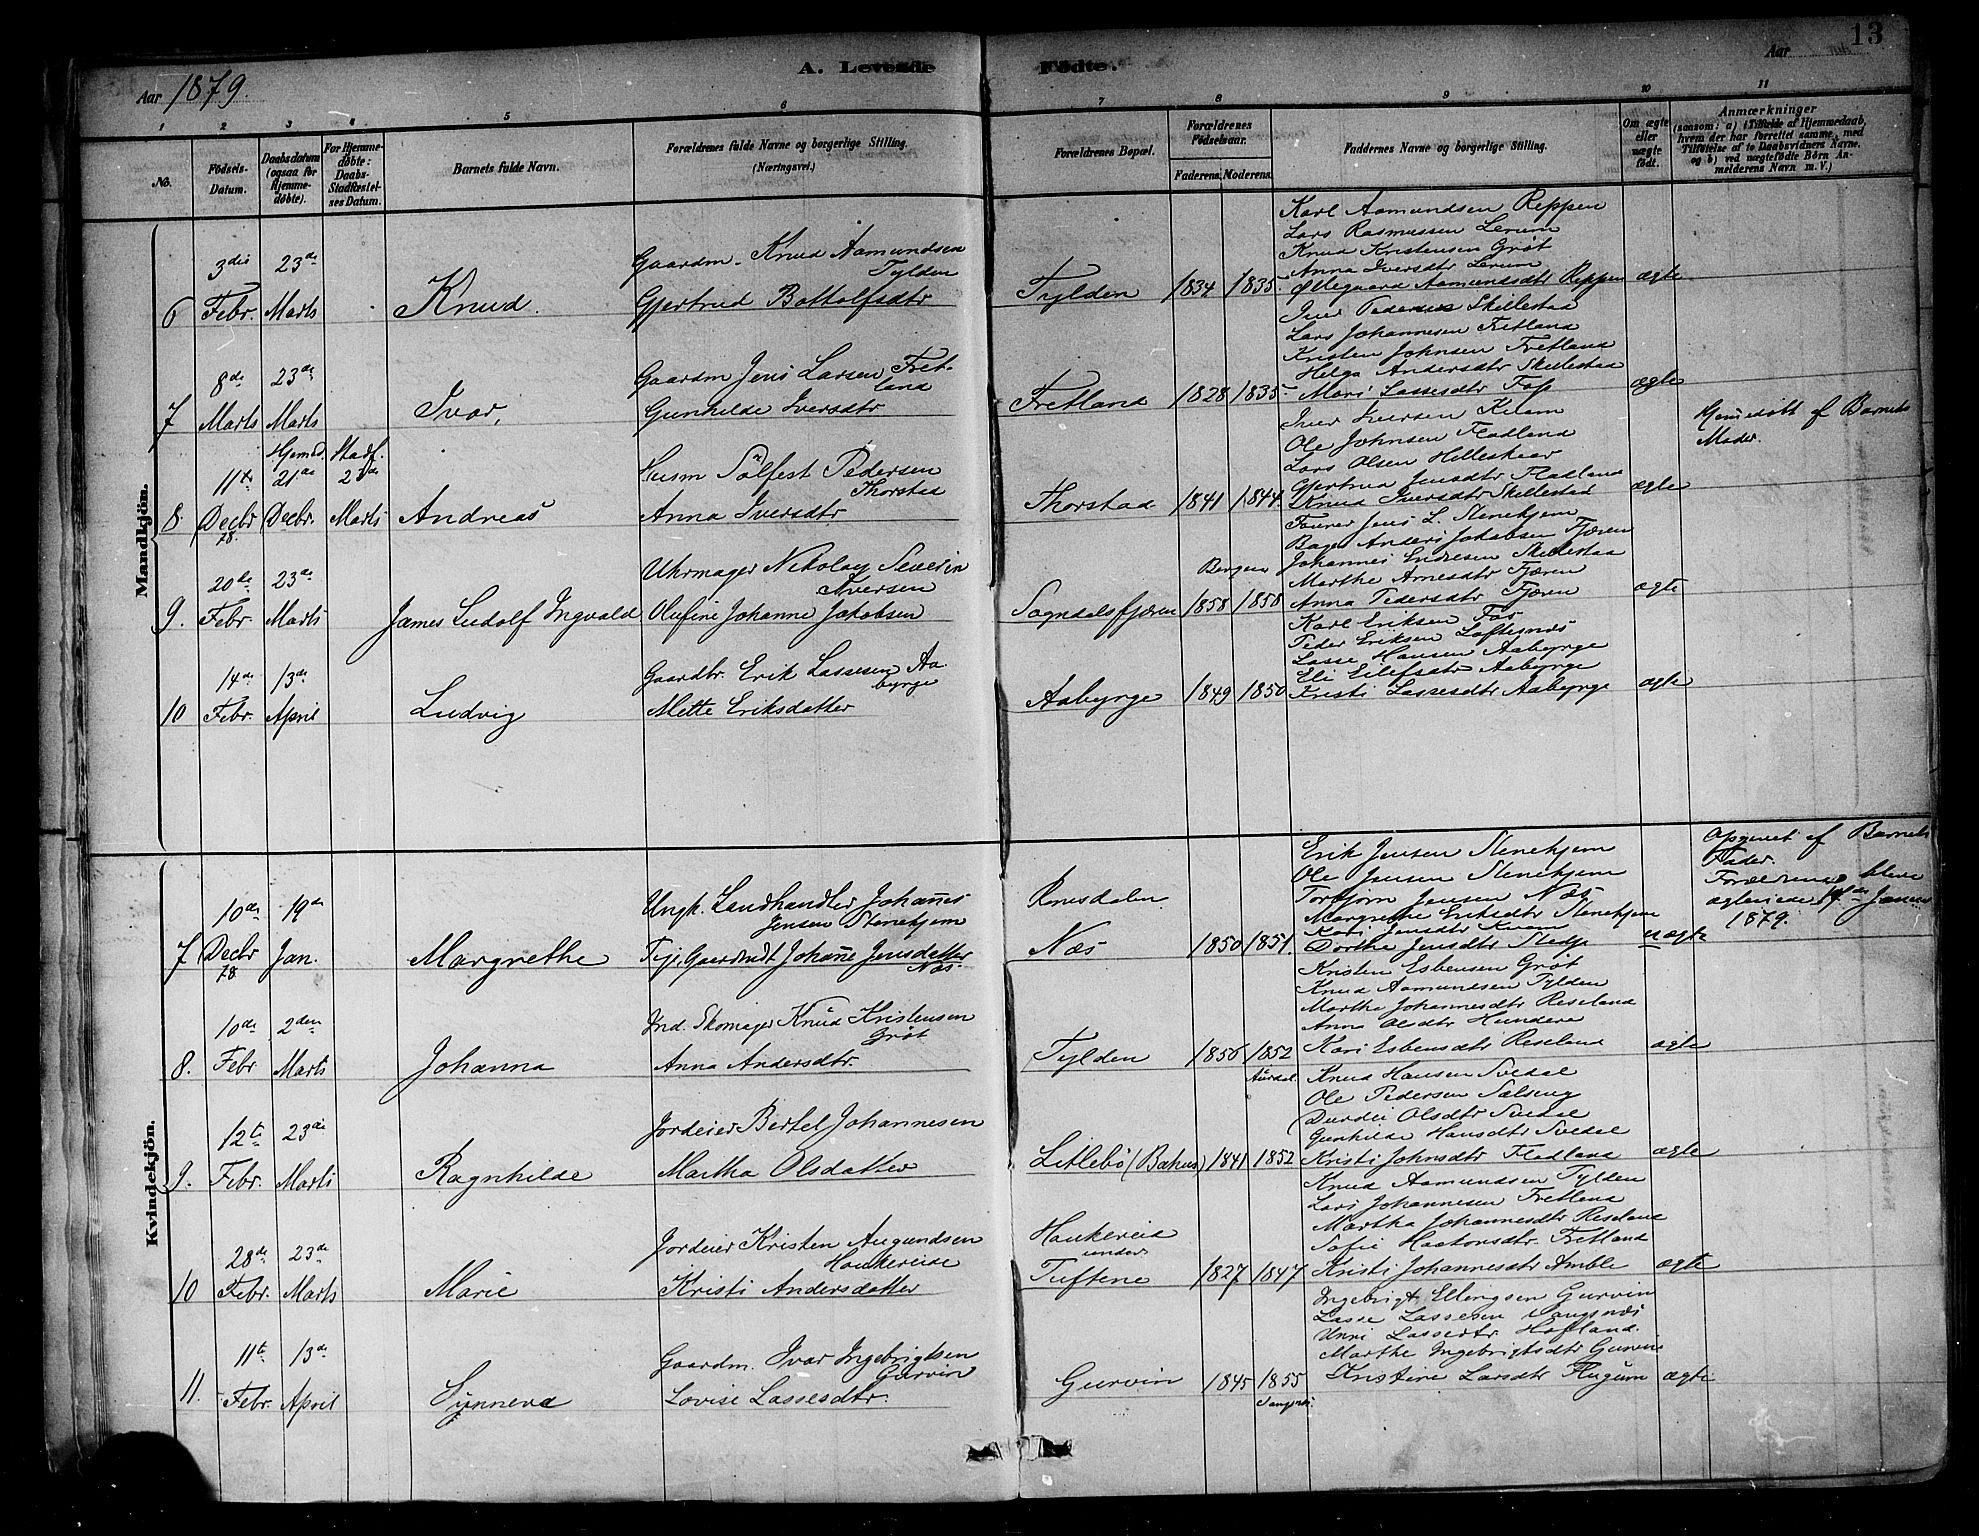 13
A. Levende Fødte.
Aar 1879.
Aar
1 2 3 4 5 6 7 8 9 10 11
No.
Fødsels-Datum.
Daabsdatum (ogsaa for Hjemme-døbte).
For Hjemme-døbte: Daabs-Stadfæstel-ses Datum.
Barnets fulde Navn.
Forældrenes fulde Navne og borgerlige Stilling. (Næringsvei.)
Forældrenes Bopæl.
Forældrenes Fødselsaar.
Faderens. Moderens.
Faddernes Navne og borgerlige Stilling.
Om ægte eller uægte født.
Anmærkninger
(saasom: a) i Tilfælde af Hjemmedaab, hvem der har forrettet samme, med Tilføielse af to Daabsvidners Navne, og b) ved uægtefødte Børn Anmelderens Navn m. V.)
Mandkjön.
6
3die Febr.
23de Marts
Knud.
Gaardm. Knud Aamundsen Tylden
Gjertrud Bottolfsdtr
Tylden
1834
1835.
Karl Aamundsen Reppen
Lars Rasmussen Lerum
Knud Kristensen Grøt
Anna Iversdtr Lerum
Øllegaard Aamundsdtr Reppen
ægte
7
8de Marts
23de Marts
Ivar,
Gaardm Jens Larsen Fretland
Gunhilde Iversdtr
Fretland
1828
1835
Iver Pedersen Skillestad
Lars Johannesen Fretland
Kristen Johnsen Fretland
Helga Andersdtr Skillestad
Mari Lassesdtr Foss
ægte
8.
11te Decbr 78.
Hjemd. 21de Decbr.
Stadf. 23de Marts
Andreas
Husm Sølfest Pedersen Thorstad
Anna Iversdtr
Thorstad
1841
1844.
Iver Iversen Kvam
Ole Johnsen Fladland
Lars Olsen Helleskaar
Gjertrud Jensdtr Fladland
Knud Iversdtr Skillestad
ægte
Hjemedøbt af Barnets Moder.
9.
20de Febr
23de Marts
James Ludolf Ingvald
Uhrmager Nikolay Severin Iversen
Olufine Johanne Jakobsen
Sogndalsfjæren
Bergen
1858
1858
Jens L. Stenehjem
Bager Anders Jakobsen Fjæren
Johannes Endresen Skillestad
Marthe Arnesdtr Fjæren
Anna Pedersdtr Fjæren
ægte
10
14de Febr.
13de April
Ludvig
Gaardbr. Erik Lassesen Aabyrge
Mette Eriksdatter
Aabyrge
1849
1850
Karl Eriksen Fos
Peder Eriksen Loftesnæs
Lasse Hansen Aabyrge
Eli Eilefsdtr Aabyrge
Kristi Lassesdtr Aabyrge
ægte
Kvindekjön.
7
10de Decbr 78
19de Jan.
Margrethe
Ungk. Landhandler Johannes Jensen Stenehjem
Pige, Gaardmdt Johanne Jensdatter Næs
Næs
1850
1851.
Erik Jensen Stenehjem
Ole Jensen Stenehjem
Torbjørn Jensen Næs
Margrethe Eriksdtr Stenehjem
Kari Jensdtr Kvam
Dorthe Jensdtr Stedje
uægte
Opgivet af Barnets Fader.
Forældrene bleve ægteviede 19de Januar 1879.
8.
10de Febr
2den Marts
Johanna
Ind. Skomager Knud Kristensen Grøt
Anna Andersdtr.
Tylden
1856
1852
Aurdal
Kristen Esbensen Grøt
Knud Aamundsen Tylden
Martha Johannesdtr Reseland
Anna Olsdtr Hundere
Kari Esbensdtr Reseland
ægte
9.
12te Febr.
23de Marts
Ragnhilde
Jordeier Bertel Johannesen
Martha Olsdatter
Litlebø (Bakus)
1841
1852
Knud Hansen Svedal
Ole Pedersen Selseng
Durdei Olsdtr Svedal
Gunhilde Hansdtr Svedal
Kristi Johnsdtr Fladland
ægte
10
28de Febr.
23de Marts
Marie
Jordeier Kristen Augundsen Haukereid
Kristi Andersdatter
Haukereid under Tuftene
1827
1847
Knud Aamundsen Tylden
Lars Johannesen Fretland
Martha Johannesdtr Reseland
Sofie Haakonsdtr. Fretland
Kristi Johannesdtr Amble
ægte
11.
11te Febr.
13de April
Synneva
Gaardm. Ivar Ingebrigtsen Gurvin
Lovise Lassesdtr.
Gurvin
1845
1855
Ingebrigt Ellingsen Gurvin
Lasse Lassesen Langnæs
Unni Lassesdtr. Hofland.
Marthe Ingebrigtsdtr Gurvin
Kristine Larsdtr Flugum
ægte